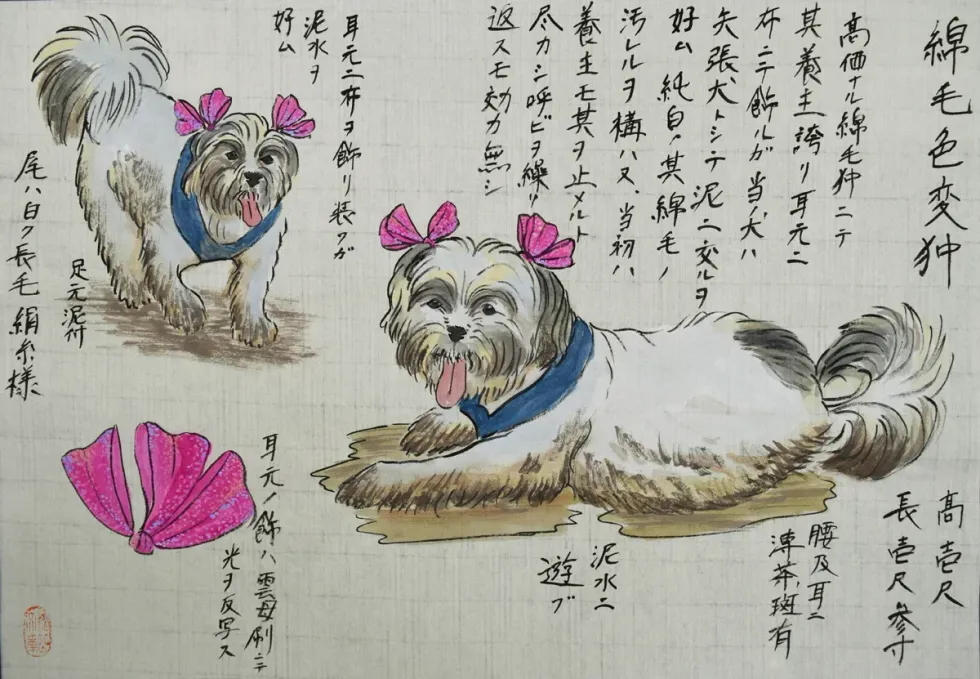 綿毛色変狆
高価ナル綿毛狆ニテ
其養主誇リ耳元ニ
布ニテ飾ルガ当ノ犬ハ
矢張犬トシテ泥ニ交ルヲ
好ム純白ノ其綿毛ノ
汚レルヲ構ハヌ、当初ハ
養主モ其ヲ止メルト
尽力シ呼ビヲ繰リ
返スモ効力無シ
耳元ニ布ヲ飾リ装フガ
泥水ヲ
好ム
足元泥付
尾ハ白ク長毛絹糸様
高壱尺
長壱尺参寸
腰及耳ニ
薄茶斑有
泥水ニ
遊ブ
耳元ノ飾ハ雲母刷ニテ
光ヲ反写ス